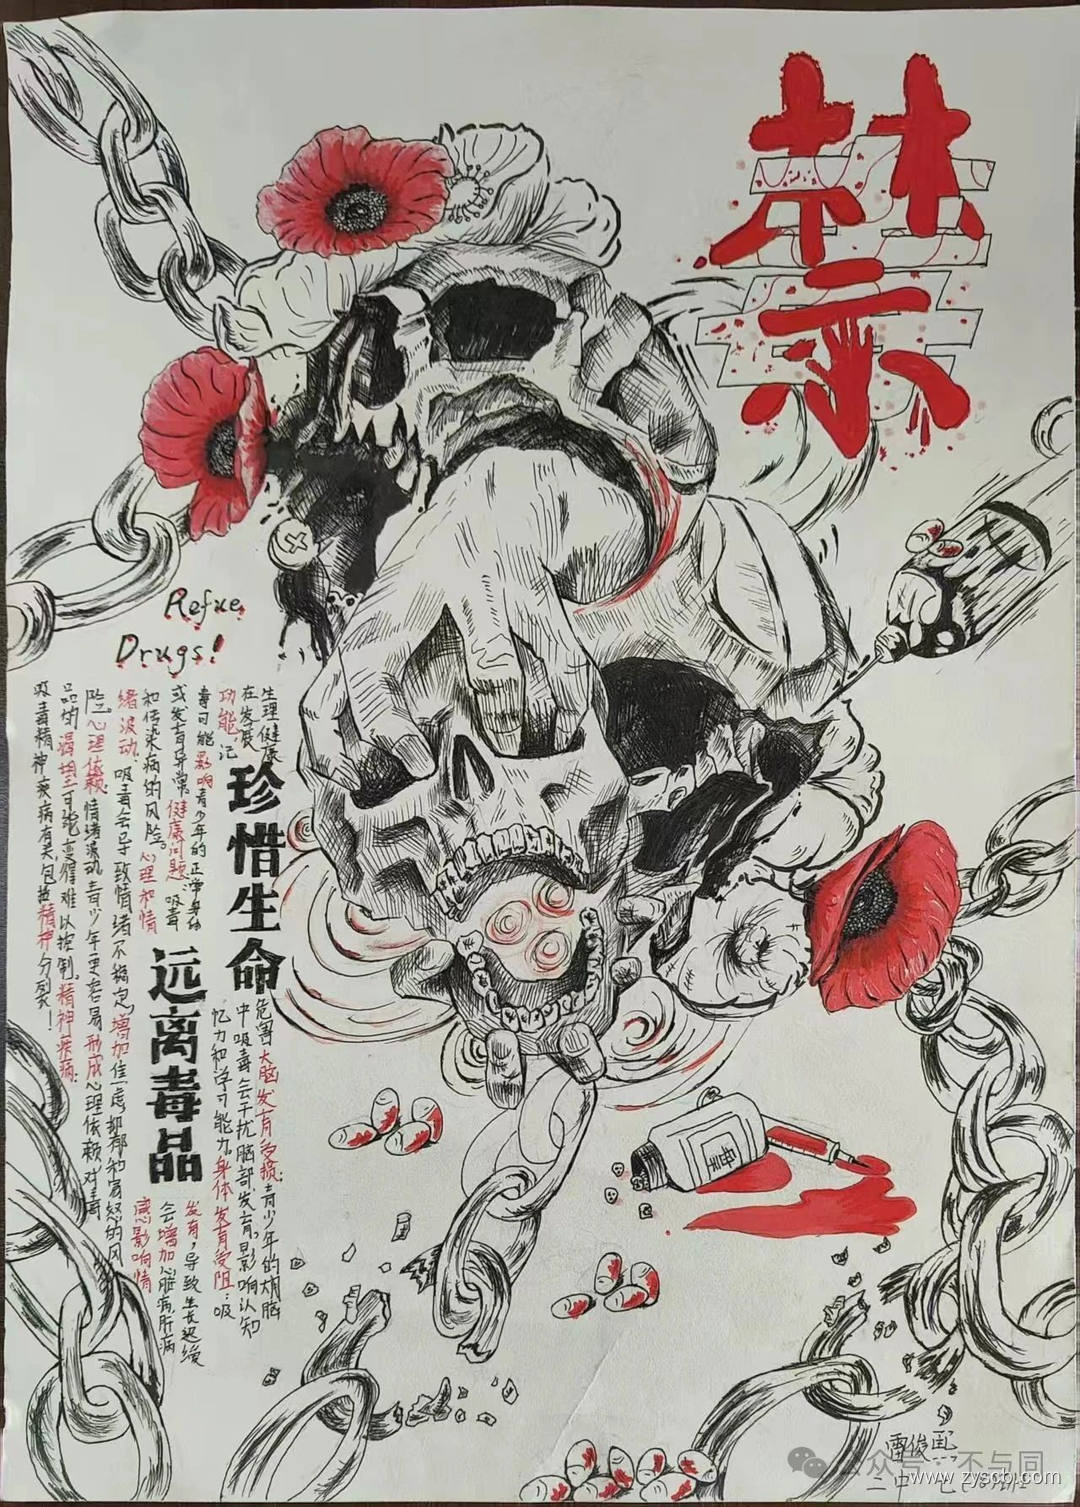 禁
Refue
Drugs!
珍惜生命
远离毒品
生理健康危害大脑发育受损:青少年的大脑
在发展中吸毒会干扰脑部发育,影响认知
功能,记忆力和学习能力。身体发育受阻:吸
毒可能影响青少年的正常身体发育,导致生长迟缓
或发育异常。健康问题:吸毒会增加心脏病肝病
和传染病的风险。心理和情感影响情
绪波动:吸毒会导致情绪不稳定,增加焦虑抑郁和易怒的风
险。心理依赖:情绪波动青少年更容易形成心理依赖对毒
品的渴望可能变得难以控制。精神疾病:
吸毒精神疾病有关包括精神分裂!
毒
雷俊
二中
公众号·不与同
www.zyscb.com